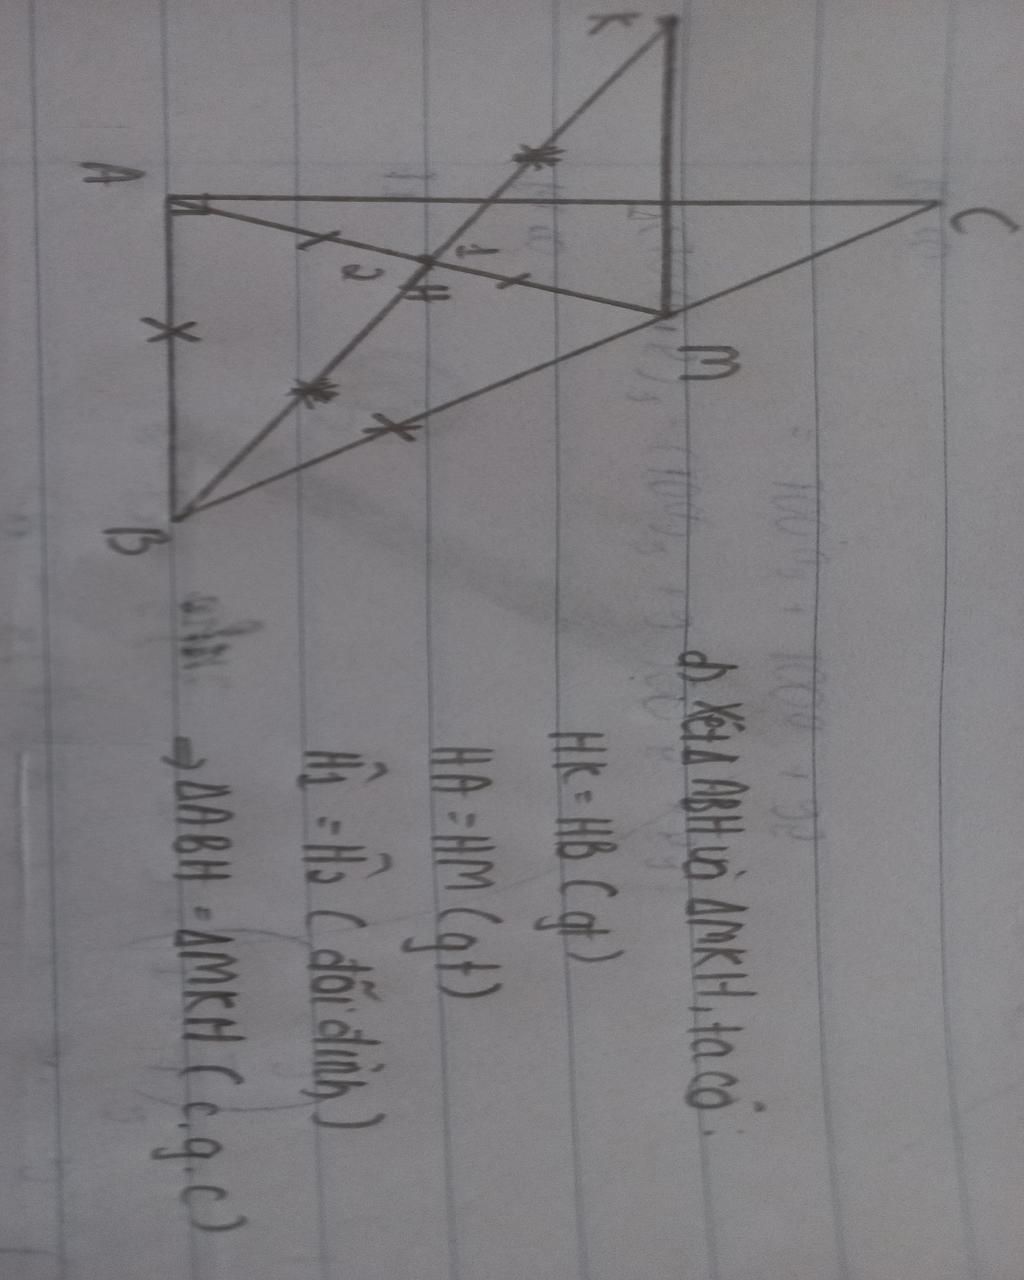 K
C
A
1
2
H
M
B
d) Xét Δ ABH và ΔMKH, ta có:
HK = HB (gt)
HA = HM (gt)
Ĥ1 = Ĥ2 (đối đỉnh)
⇒ ΔABH = ΔMKH (c.g.c)